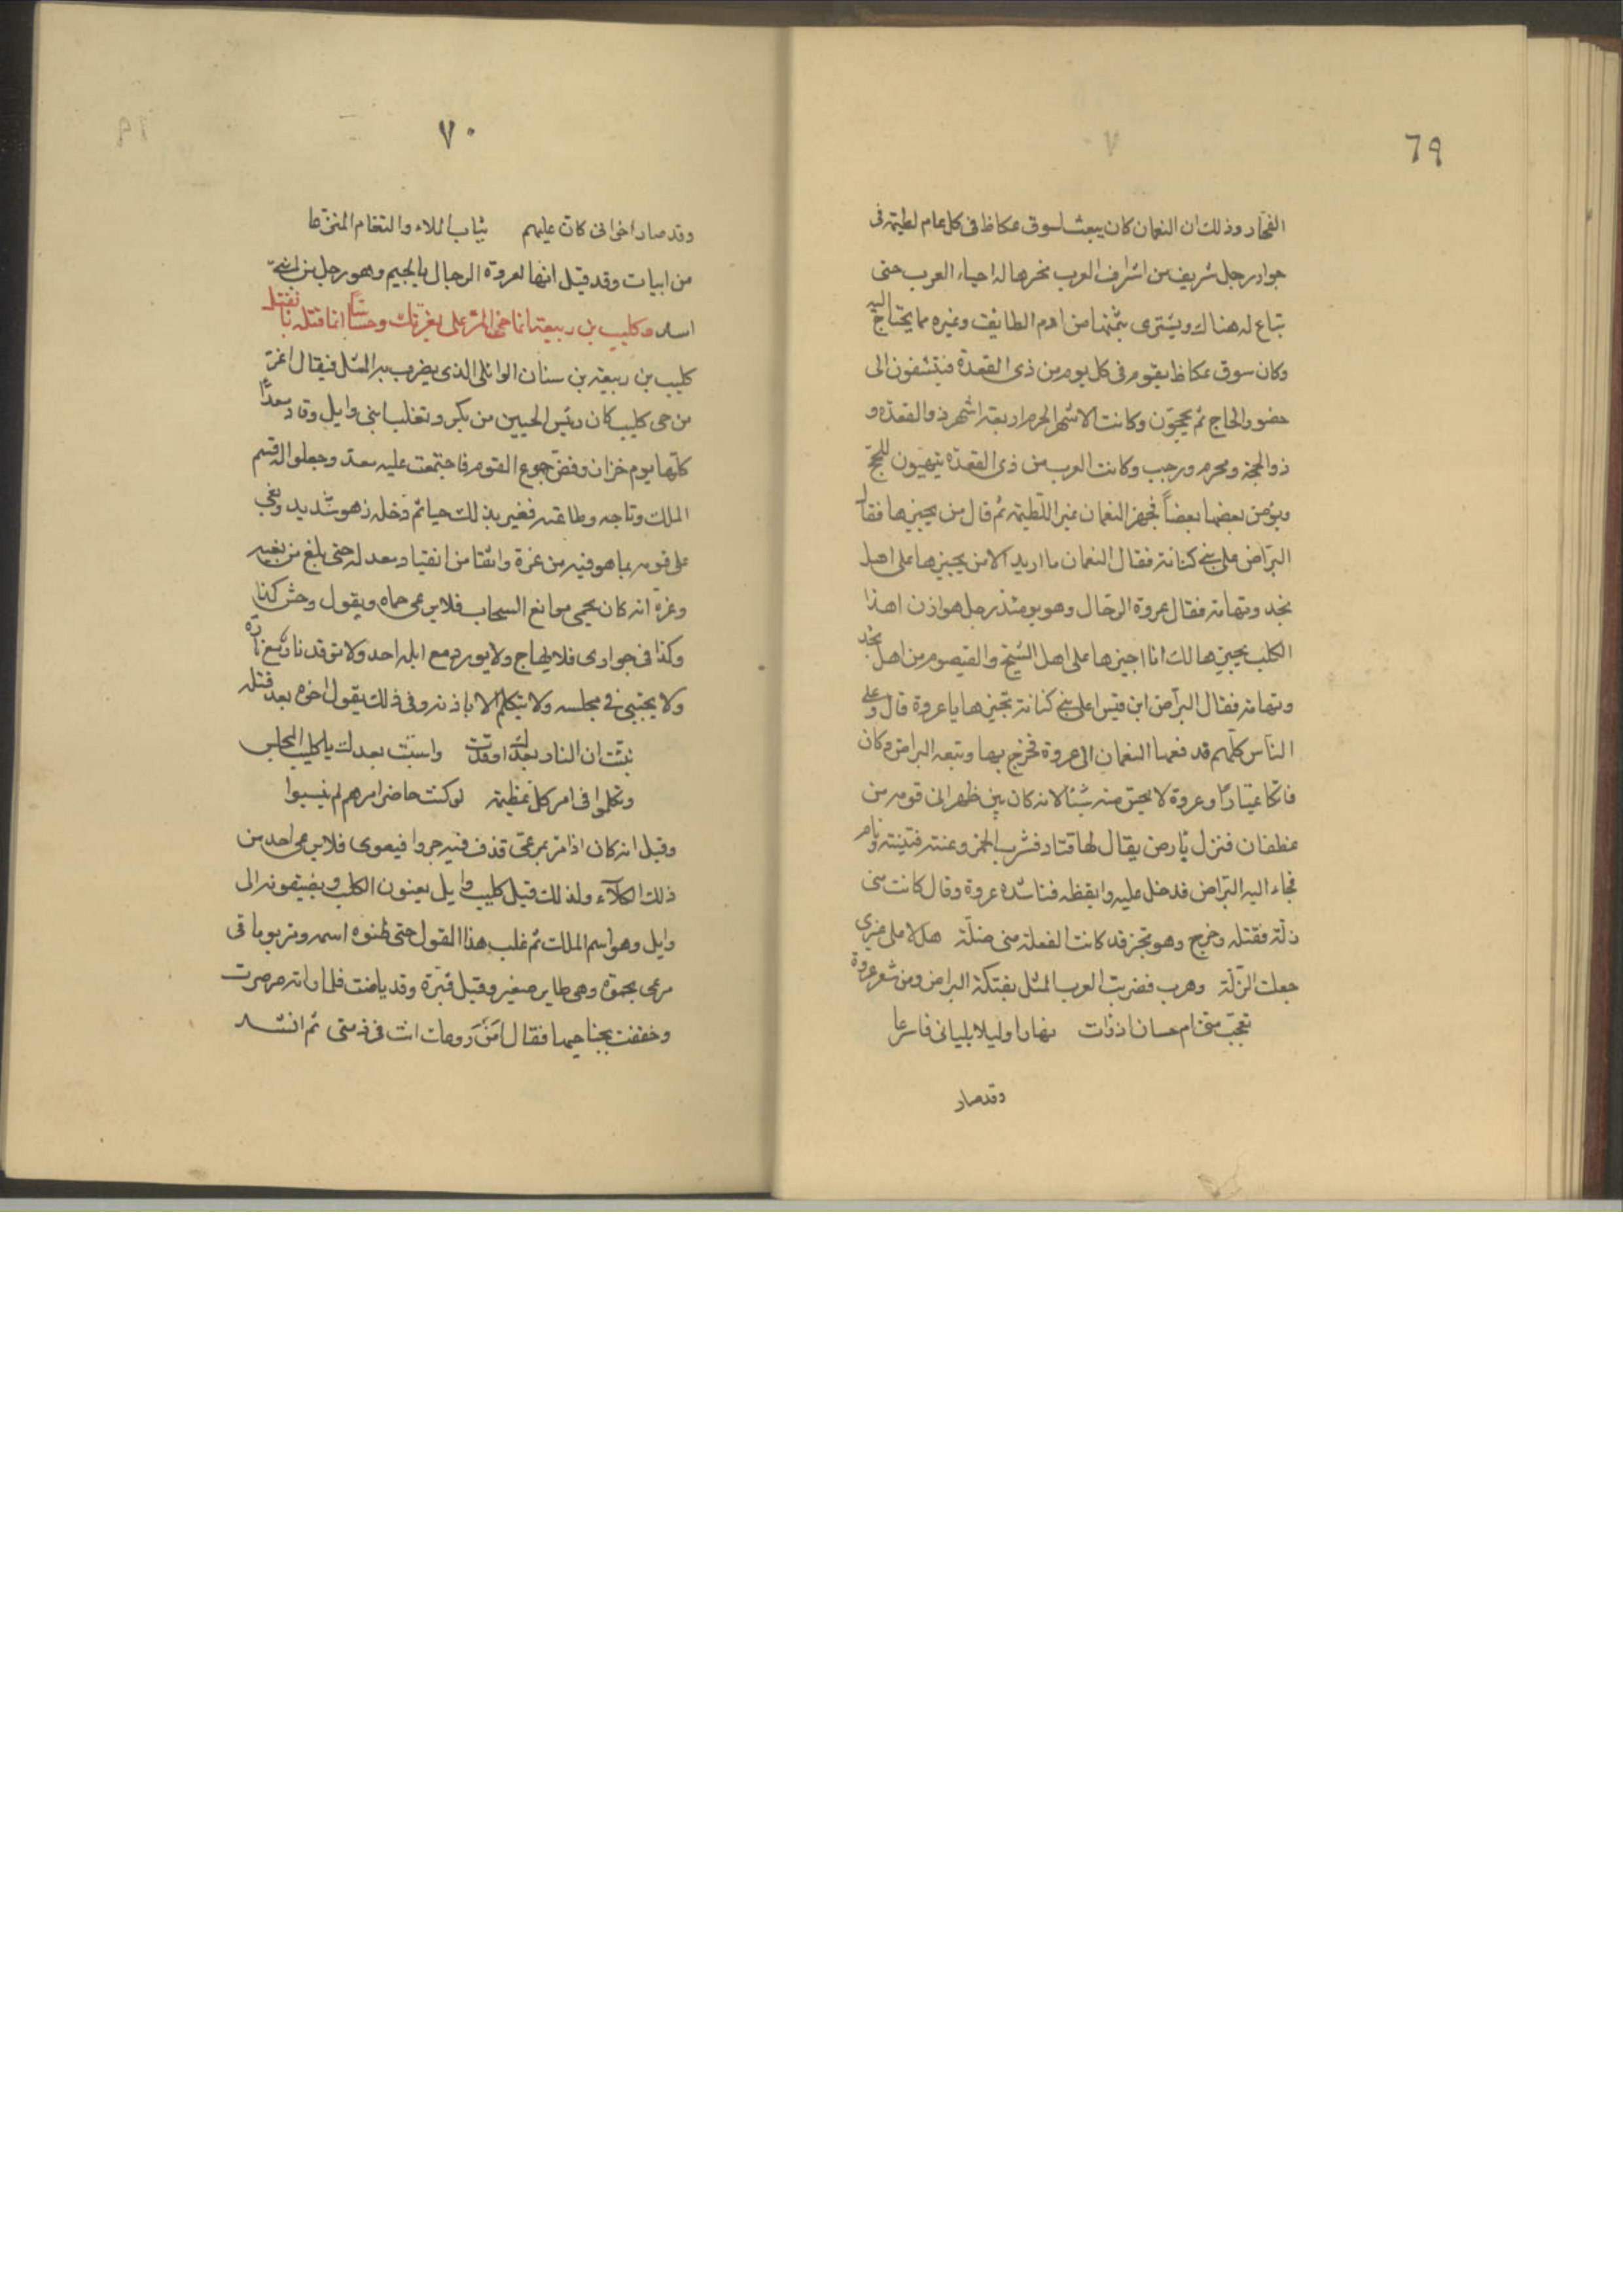 ٦٩
الفجار وذلك ان النعمان كان يبعث لسوق عكاظ فى كل عام لطيمة فى
جوار رجل شريف من اشراف العرب نخرها له احياء العرب حتى
تباع له هناك ويشترى بثمنها من ادم الطايف وغيره مما يحتاج اليه
وكان سوق عكاظ يقوم فى كل يوم من ذى القعدة فيتشفون الى
حضور الحاج ثم يحجون وكانت الاشهر الحرم اربعة اشهر ذو القعدة و
ذو الحجة ومحرم ورجب وكانت العرب من ذى القعدة يتهيون للحج
ويؤمن بعضها بعضاً فجهز النعمان عير اللطيمة ثم قال من يجيزها فقال
البراض على بنى كنانة فقال النعمان ما اريد الا من يجيزها على اهل
نجد وتهامة فقال عروة الرحال وهو يومئذ رجل هوازن اهذا
الكلب يجيزها لك انا اجيزها على اهل الشيح والقيصوم من اهل نجد
وتهامة فقال البراض ابن قيس اعلى بنى كنانة تجيزها يا عروة قال وعلى
الناس كلهم فدفعها النعمان الى عروة فخرج بها وتبعه البراض وكان
فاتكا عيّارًا وعروة لا يحس منه شيئا لانه كان بين ظهرانى قومه من
غطفان فنزل بأرض يقال لها قتاد فشرب الخمر وغنته فتينته ونام
فجاء اليه البراض فدخل عليه وايقظه فناشده عروة وقال كانت منى
زلة فقتله وخرج وهو يرتجز قد كانت الفعلة منى ضلّة هلا على غيرى
جعلت الزلّة وهرب فضربت العرب المثل بفتكة البراض ومن شعر عروة
تعجب منى ام حسان اذ رات نهارا وليلا بليانى فاسرعا
وقد صار
٧٠
وقد صار اخوانى كان عليهم ثياب الملاء والثغام المنزعا
من ابيات وقد قيل انها لعروة الرجال بالجيم وهو رجل من
اسد وكليب بن ربيعة انما حمى المرعى بعزتك وجسّاسًا انما قتله بانفتك
كليب بن ربيعة بن سنان الوائلى الذى يضرب به المثل فيقال اعز
من حمى كليب كان رئيس الحيين من بكر وتغلب ابنى وايل وقاد معدًا
كلها يوم خزان وفض جموع القوم فاجتمعت عليه معد وجعلوا له قسم
الملك وتاجه وطاعته فغير بذلك حينا ثم دخله زهو شديد وبغى
على قومه بما هو فيه من عزة وانقا من انقياد معد له حتى بلغ من بغيه
وعزة انه كان يحمى مواقع السحاب فلا يرعى حماه ويقول وحش كذا
وكذا فى جوارى فلا يهاج ولا يورد مع ابله احد ولا توقد نار مع ناره
ولا يحتبى فى مجلسه ولا يتكلم الا باذنه وفى ذلك يقول اخوه بعد قتله
نبّئت ان النار بعدك اوقدت واستبّ بعدك يا كليب المجلس
وتكلموا فى امر كل عظيمة لو كنت حاضر امرهم لم ينبسوا
وقيل انه كان اذا مر بمرعى قذف فيه جروا فيعوى فلا يرعى احد من
ذلك الكلآء ولذلك قيل كليب وايل يعنون الكلب ويضيفونه الى
وايل وهو اسم الملك ثم غلب هذا القول حتى ظنوه اسمه ومر يوما فى
مرعى بحمرة وهى طاير صغير وقيل قبّرة وقد باضت فلما راته صرصرت
وخفقت بجناحيها فقال امن روعك انت فى ذمتى ثم انشد